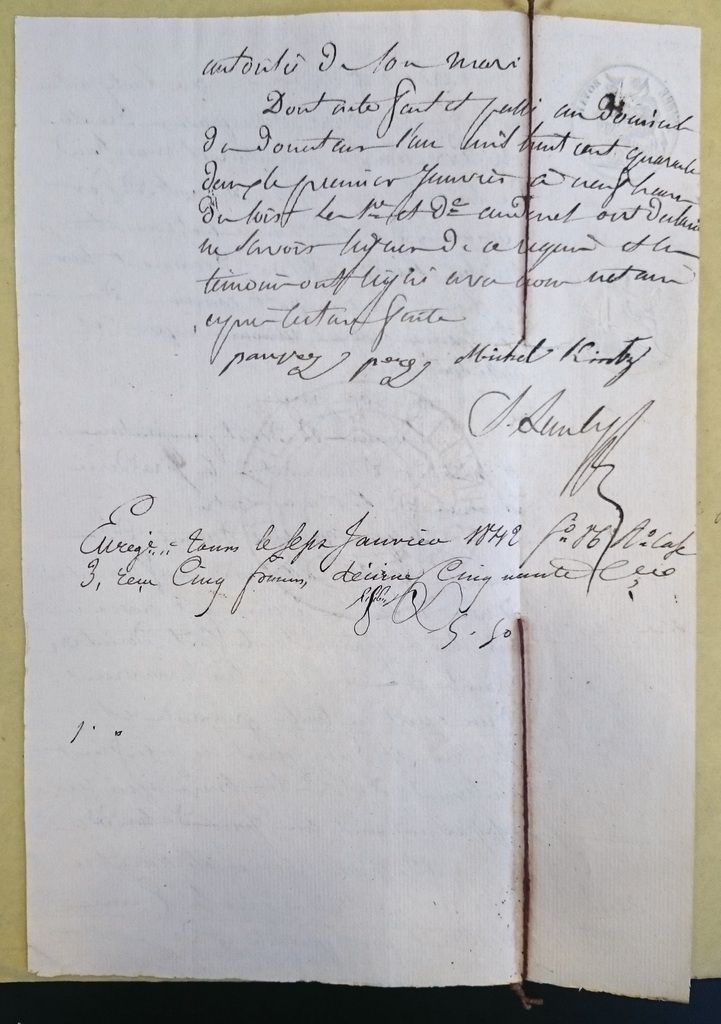 autorité de son mari
Dont acte fait et passé au domicile
du donateur l'an mil huit cent quarante
deux le premier Janvier à neuf heures
du soir Les Sr et De ont déclaré
ne Savoir signer de ce requis et les
témoins ont signé avec nous notaire
après lecture faite
pauvez perez Michel
Enregé à tours le sept Janvier 1842 fo 86 Ro Case
3, reçu Cinq francs, décime Cinquante Ces
5. 50